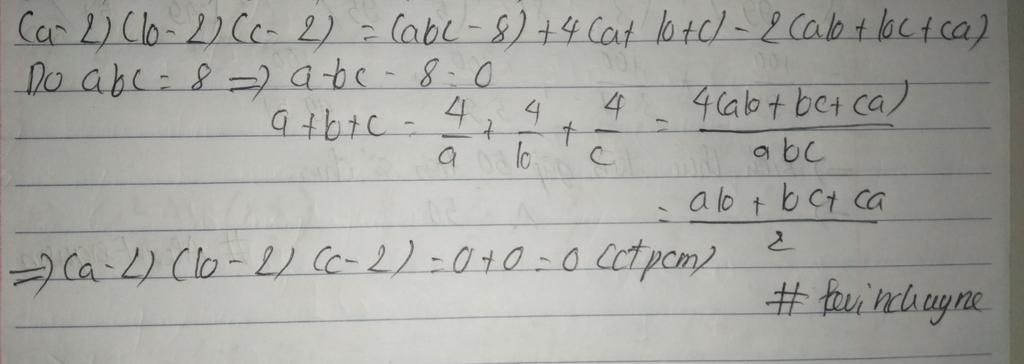 (a-2)(b-2)(c-2) = (abc-8)+4(a+b+c)-2(ab+bc+ca)
Do abc = 8 => abc - 8 = 0
a+b+c = 4/a + 4/b + 4/c = 4(ab+bc+ca)/abc
= ab+bc+ca/2
=> (a-2)(b-2)(c-2) = 0+0 = 0 (ctpcm)